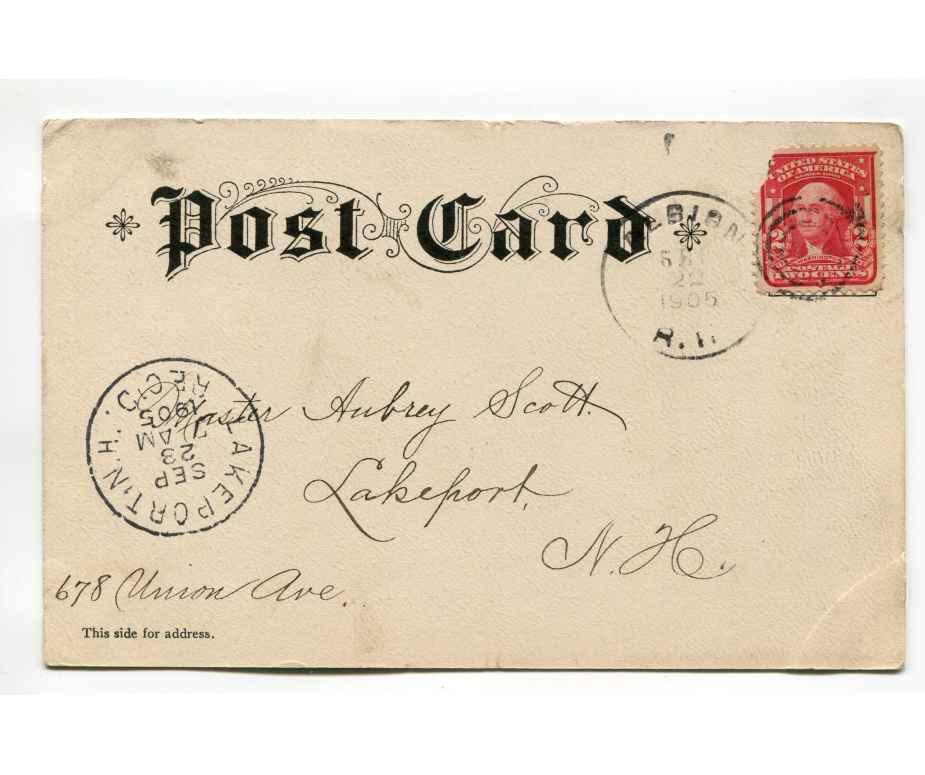 Post Card
UNITED STATES
OF AMERICA
POSTAGE
TWO CENTS
SEP
22
1905
R.I.
LAKEPORT, N.H.
REC'D.
SEP
23
7 AM
1905
Master Aubrey Scott.
Lakeport,
N. H.
678 Union Ave.
This side for address.